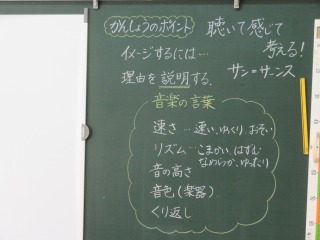 かんしょうのポイント
聴いて感じて
考える!
イメージするには…
サン=サーンス
理由を説明する。
音楽の言葉
速さ…速い、ゆっくり、おそい
リズム…こまかい、はずむ
なめらか、ゆったり
音の高さ
音色(楽器)
くり返し